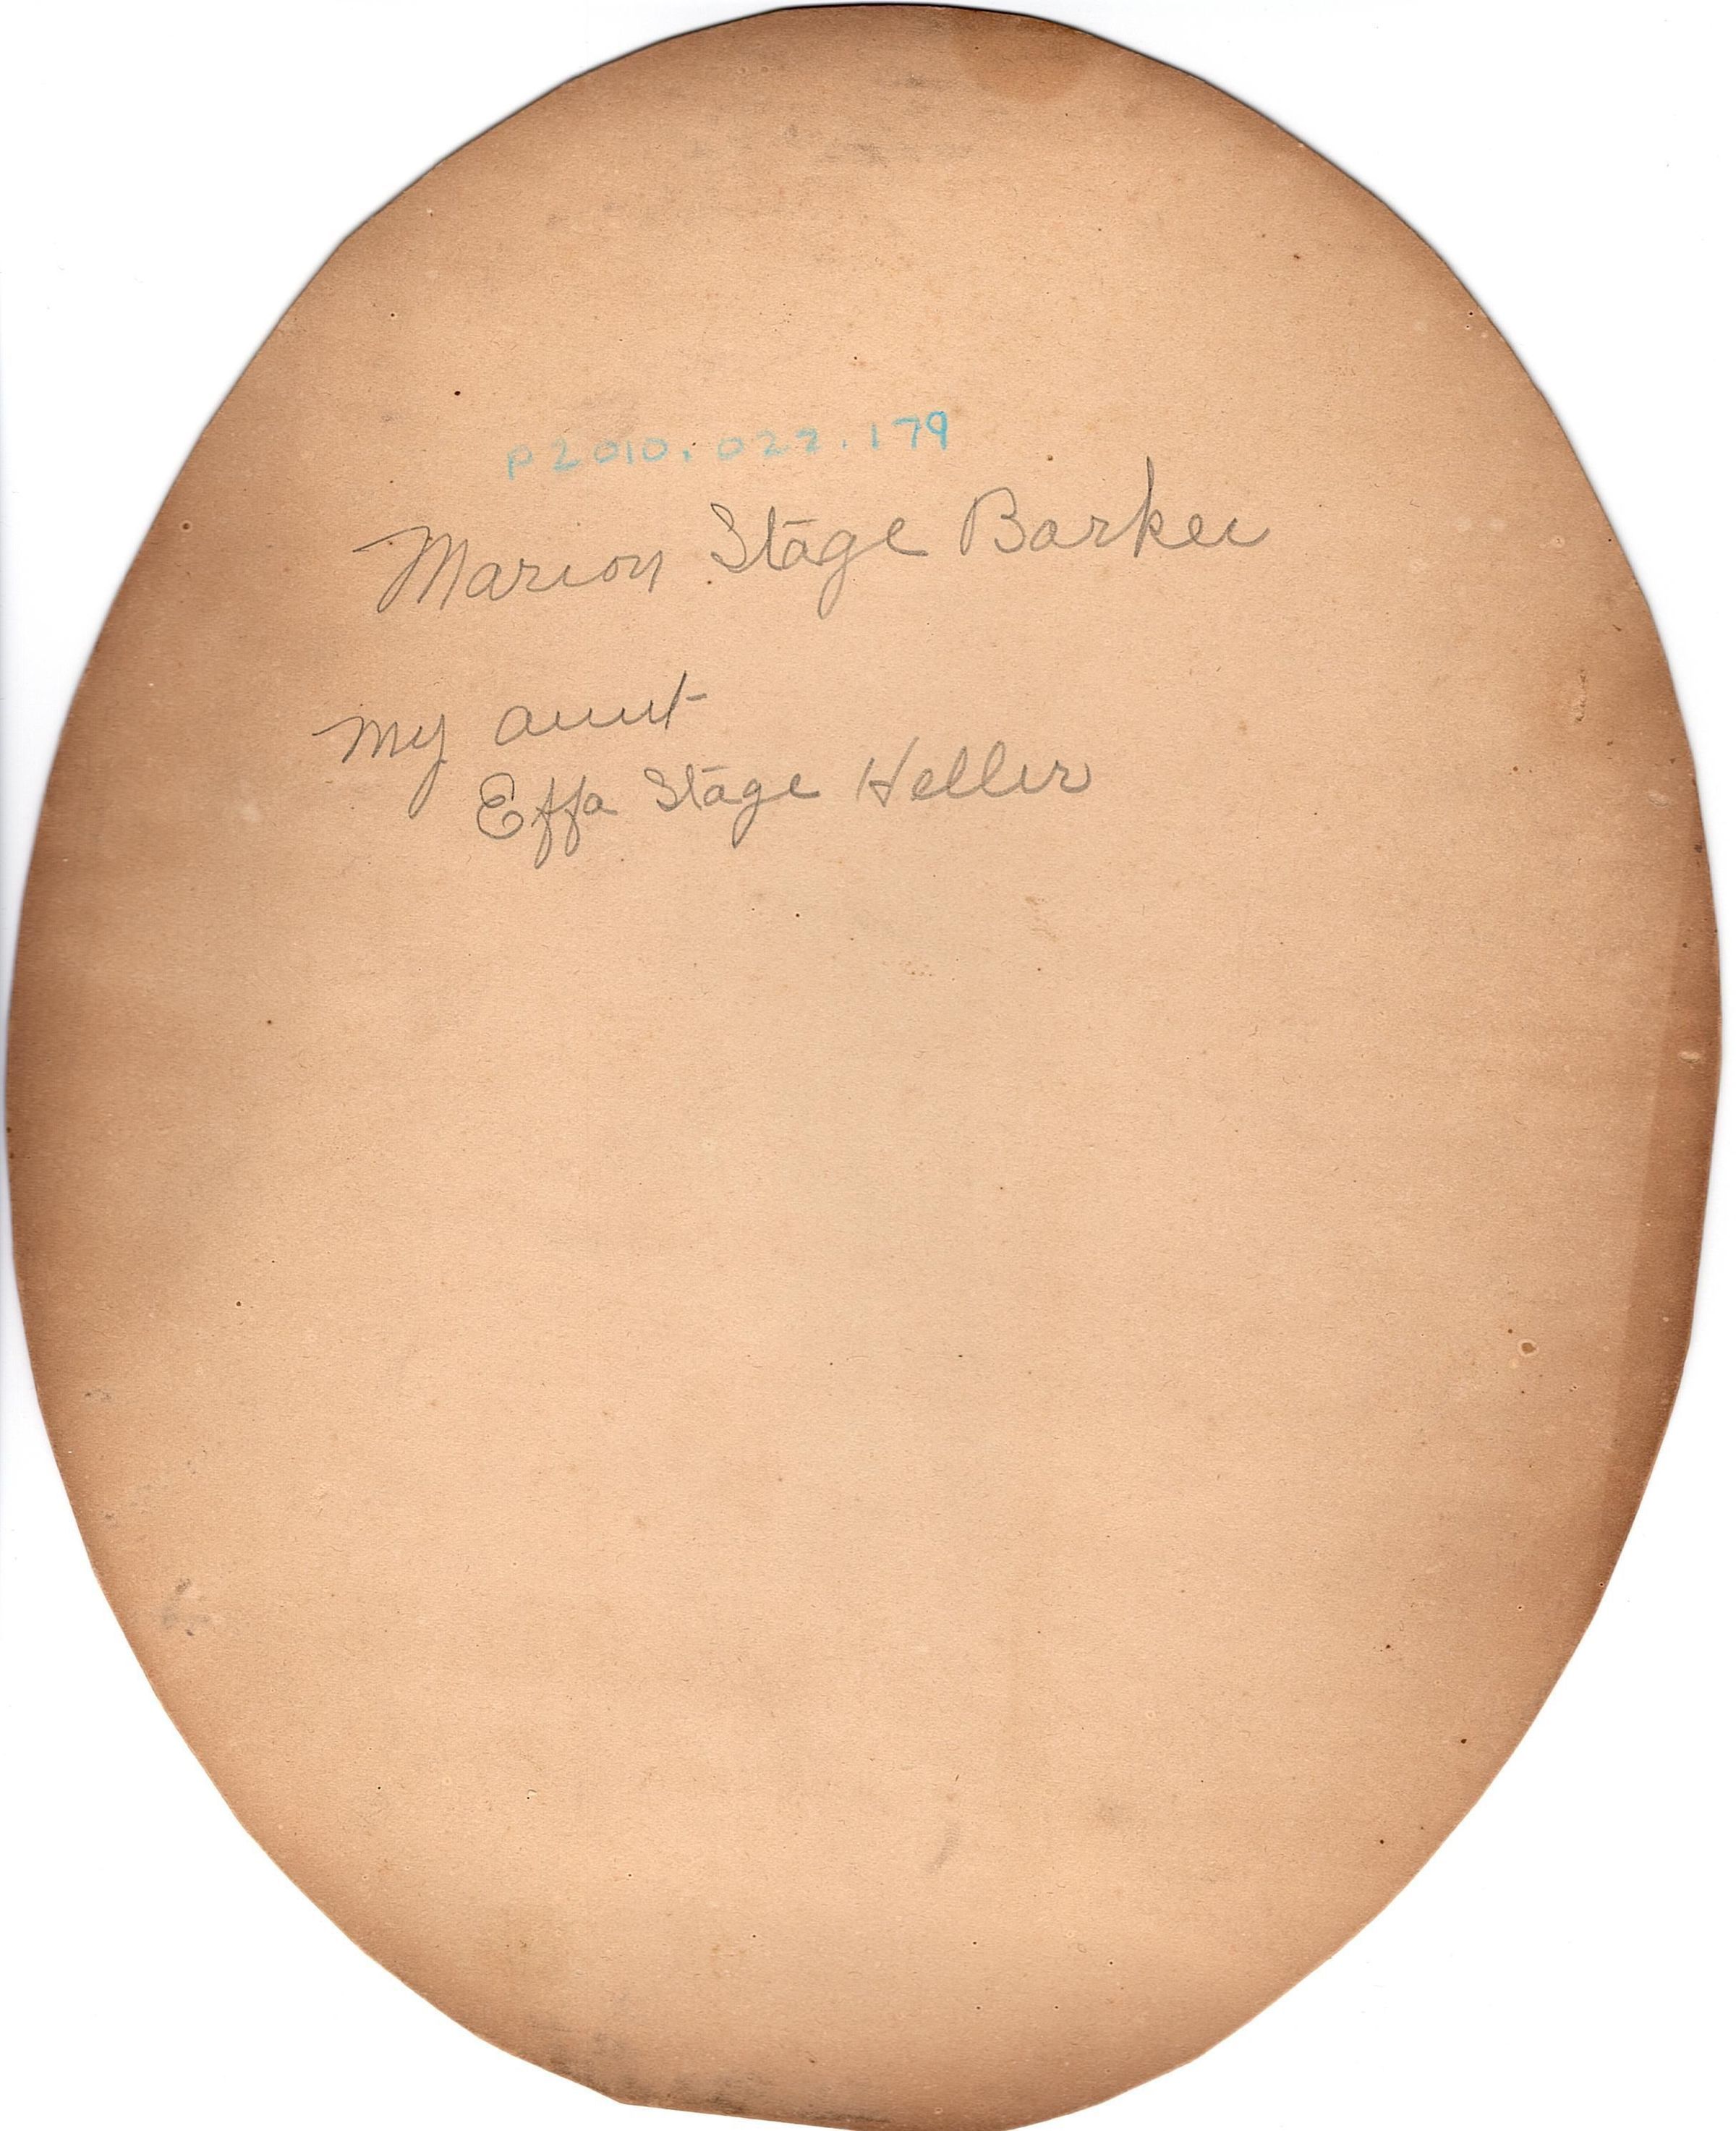 P2010.022.179
Marion Stage Barker
My aunt
Effa Stage Heller